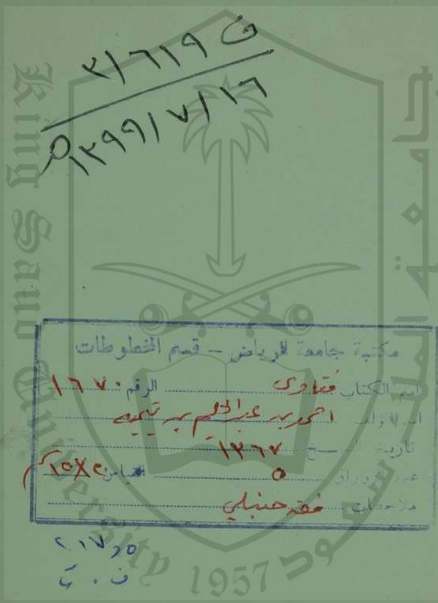 ف ٣/٦١٩
١٣٩٩/٧/١٦هـ
King Saud University
1957
مكتبة جامعة الرياض - قسم المخطوطات
اسم الكتاب فتاوى الرقم ١٦٧٠
اسم المؤلف احمد بن عبد الحليم بن تيمية
تاريخ النسخ ١٣٦٧
عدد الأوراق ٥
ملاحظات فقه حنبلي
٢١٧٫٥
ف . ت